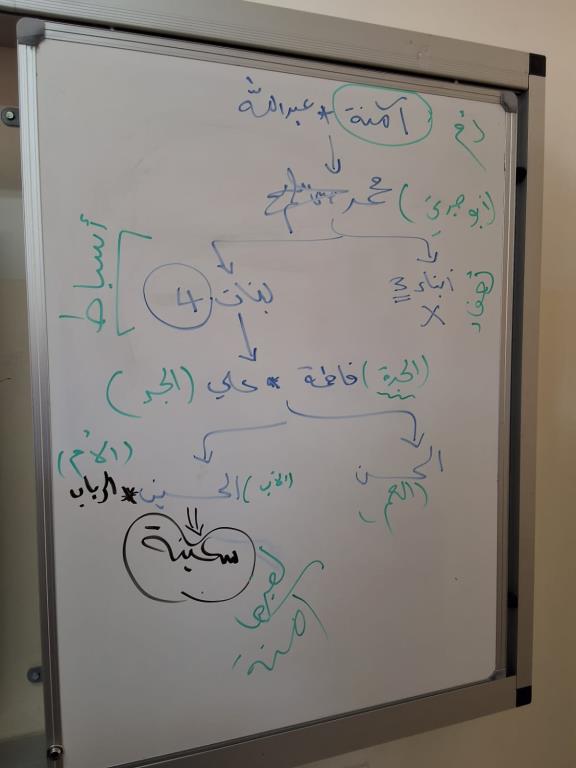 آمنة * عبد الله
محمد ﷺ
(أبو جدي)
أبناء 3
X
بنات 4
أسباط
(الجدة) فاطمة * علي (الجد)
الحسن
(العم)
(الأب) الحسين * الرباب
(الأم)
سكينة
آمنة